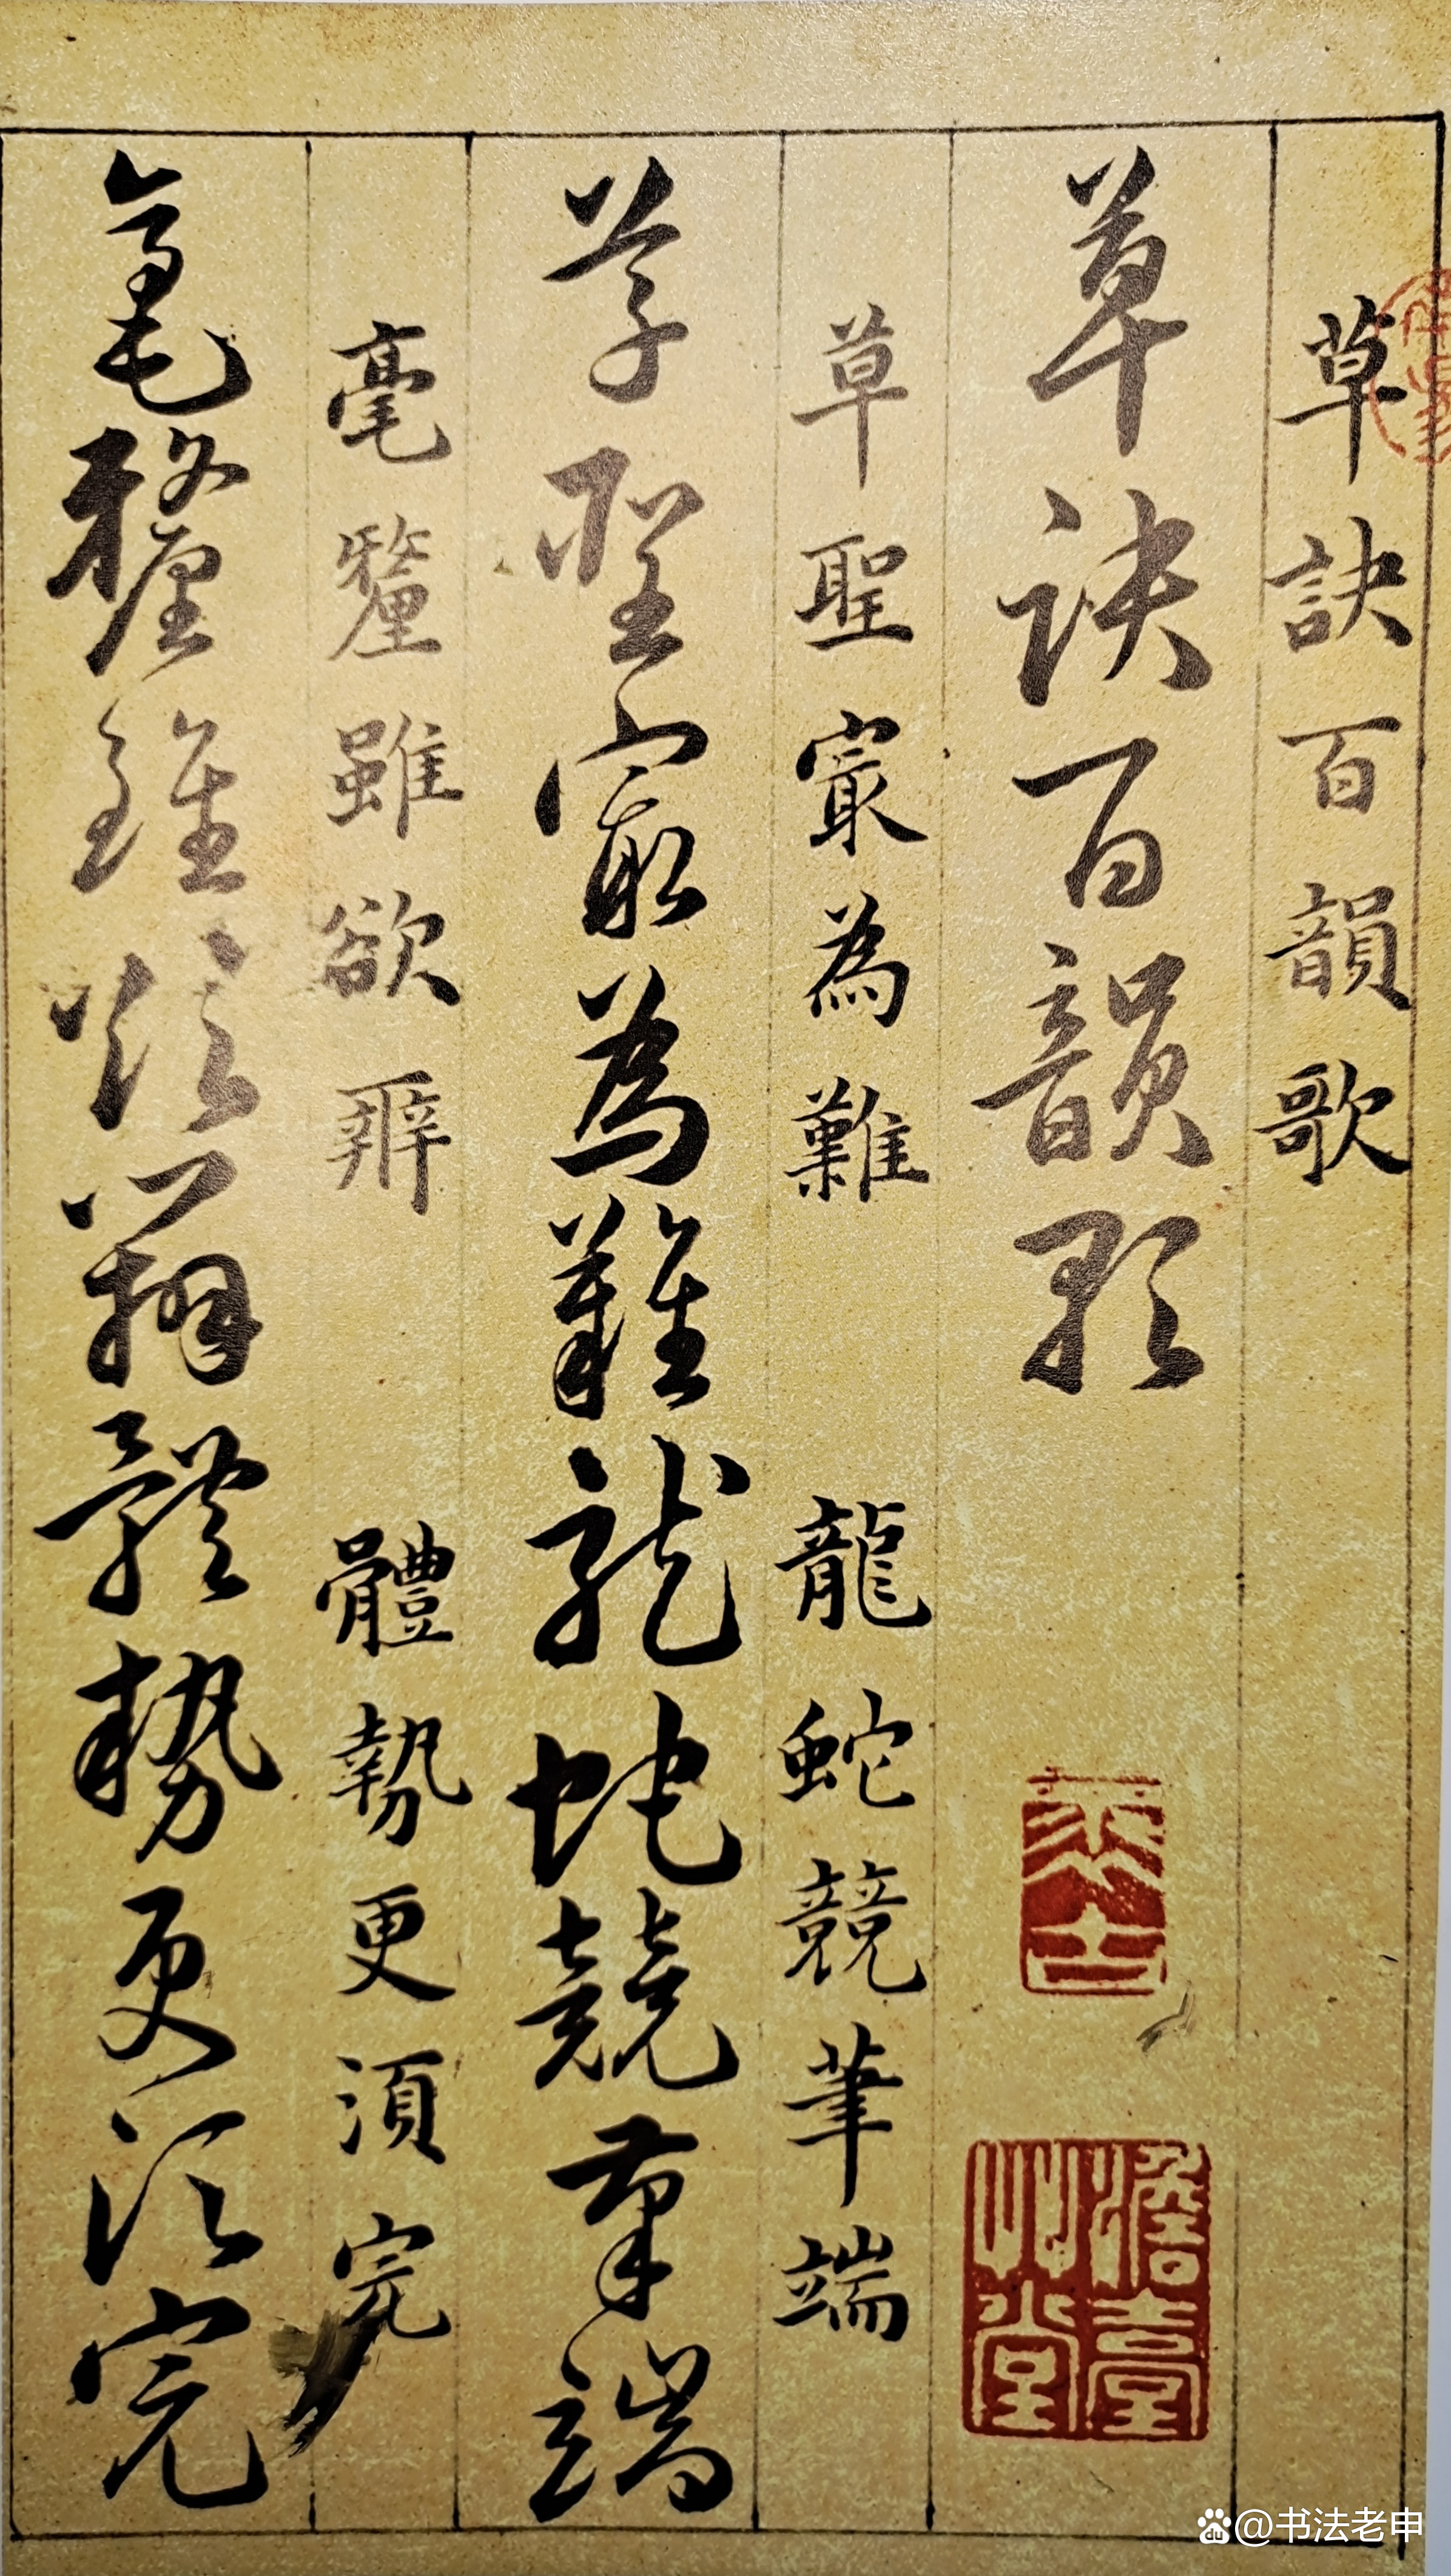 草訣百韻歌
草訣百韻歌
草聖寂為難 龍蛇競筆端
草聖寂為難龍蛇競筆端
毫釐雖欲辨 體勢更須完
毫釐雖欲辨體勢更須完
@书法老申